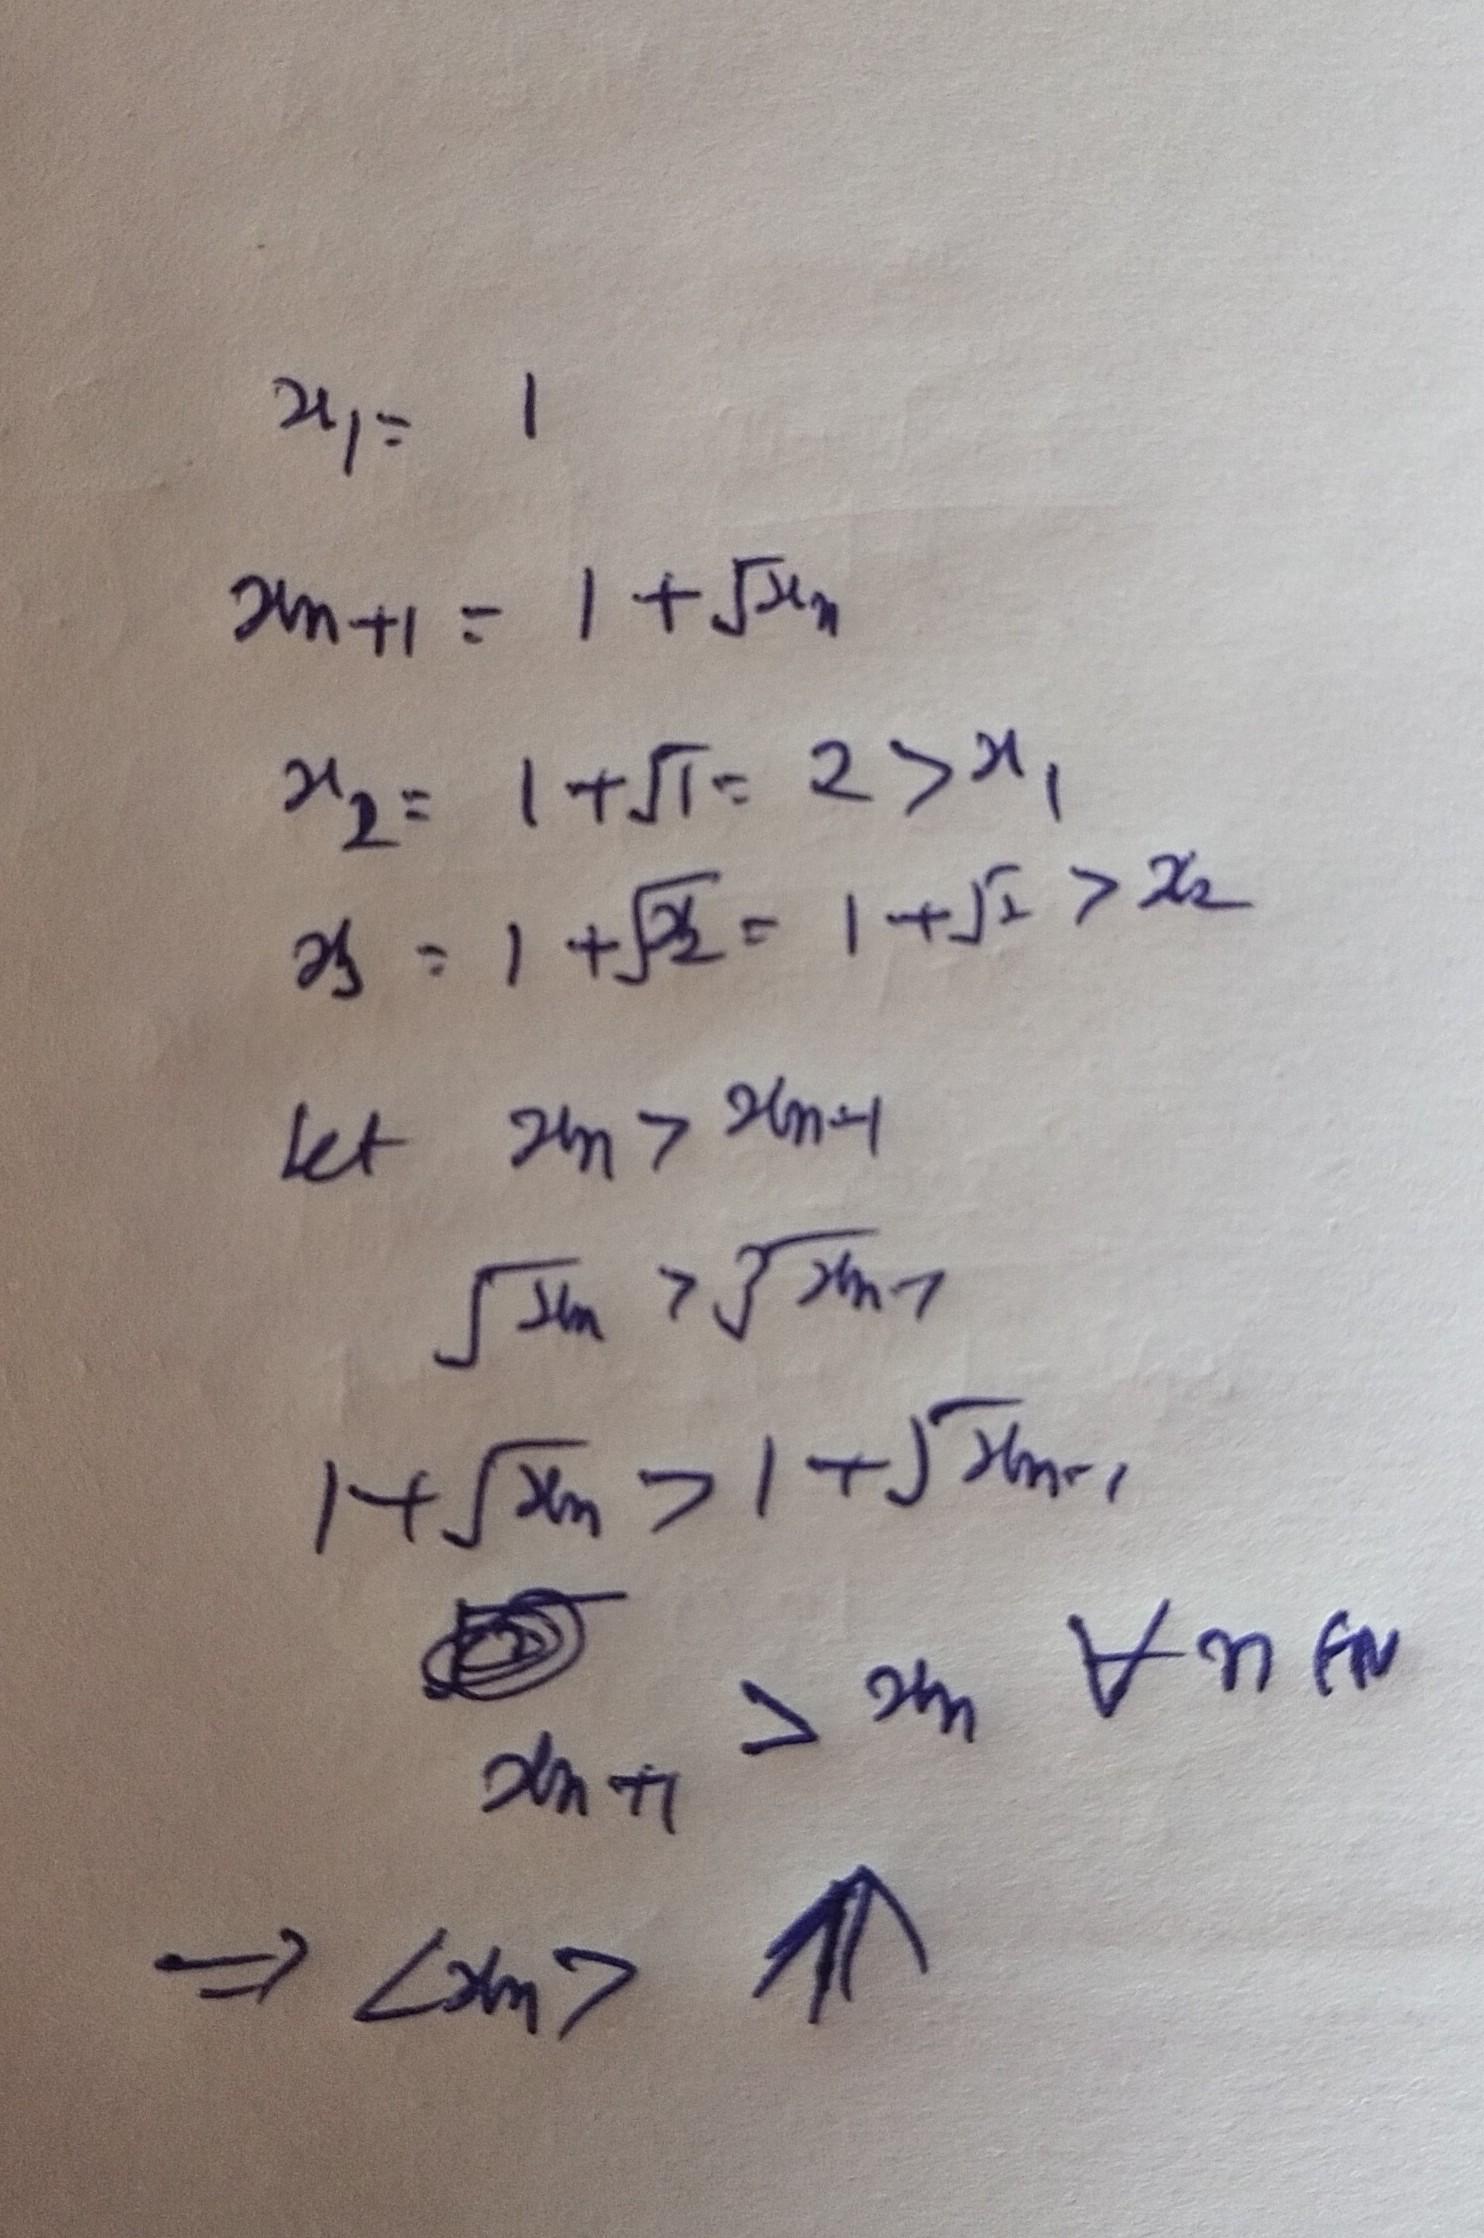 x₁ = 1
xₙ₊₁ = 1 + √xₙ
x₂ = 1 + √1 = 2 > x₁
x₃ = 1 + √x₂ = 1 + √2 > x₂
Let xₙ > xₙ₋₁
√xₙ > √xₙ₋₁
1 + √xₙ > 1 + √xₙ₋₁
xₙ₊₁ > xₙ ∀ n ∈ N
⇒ <xₙ> ↑